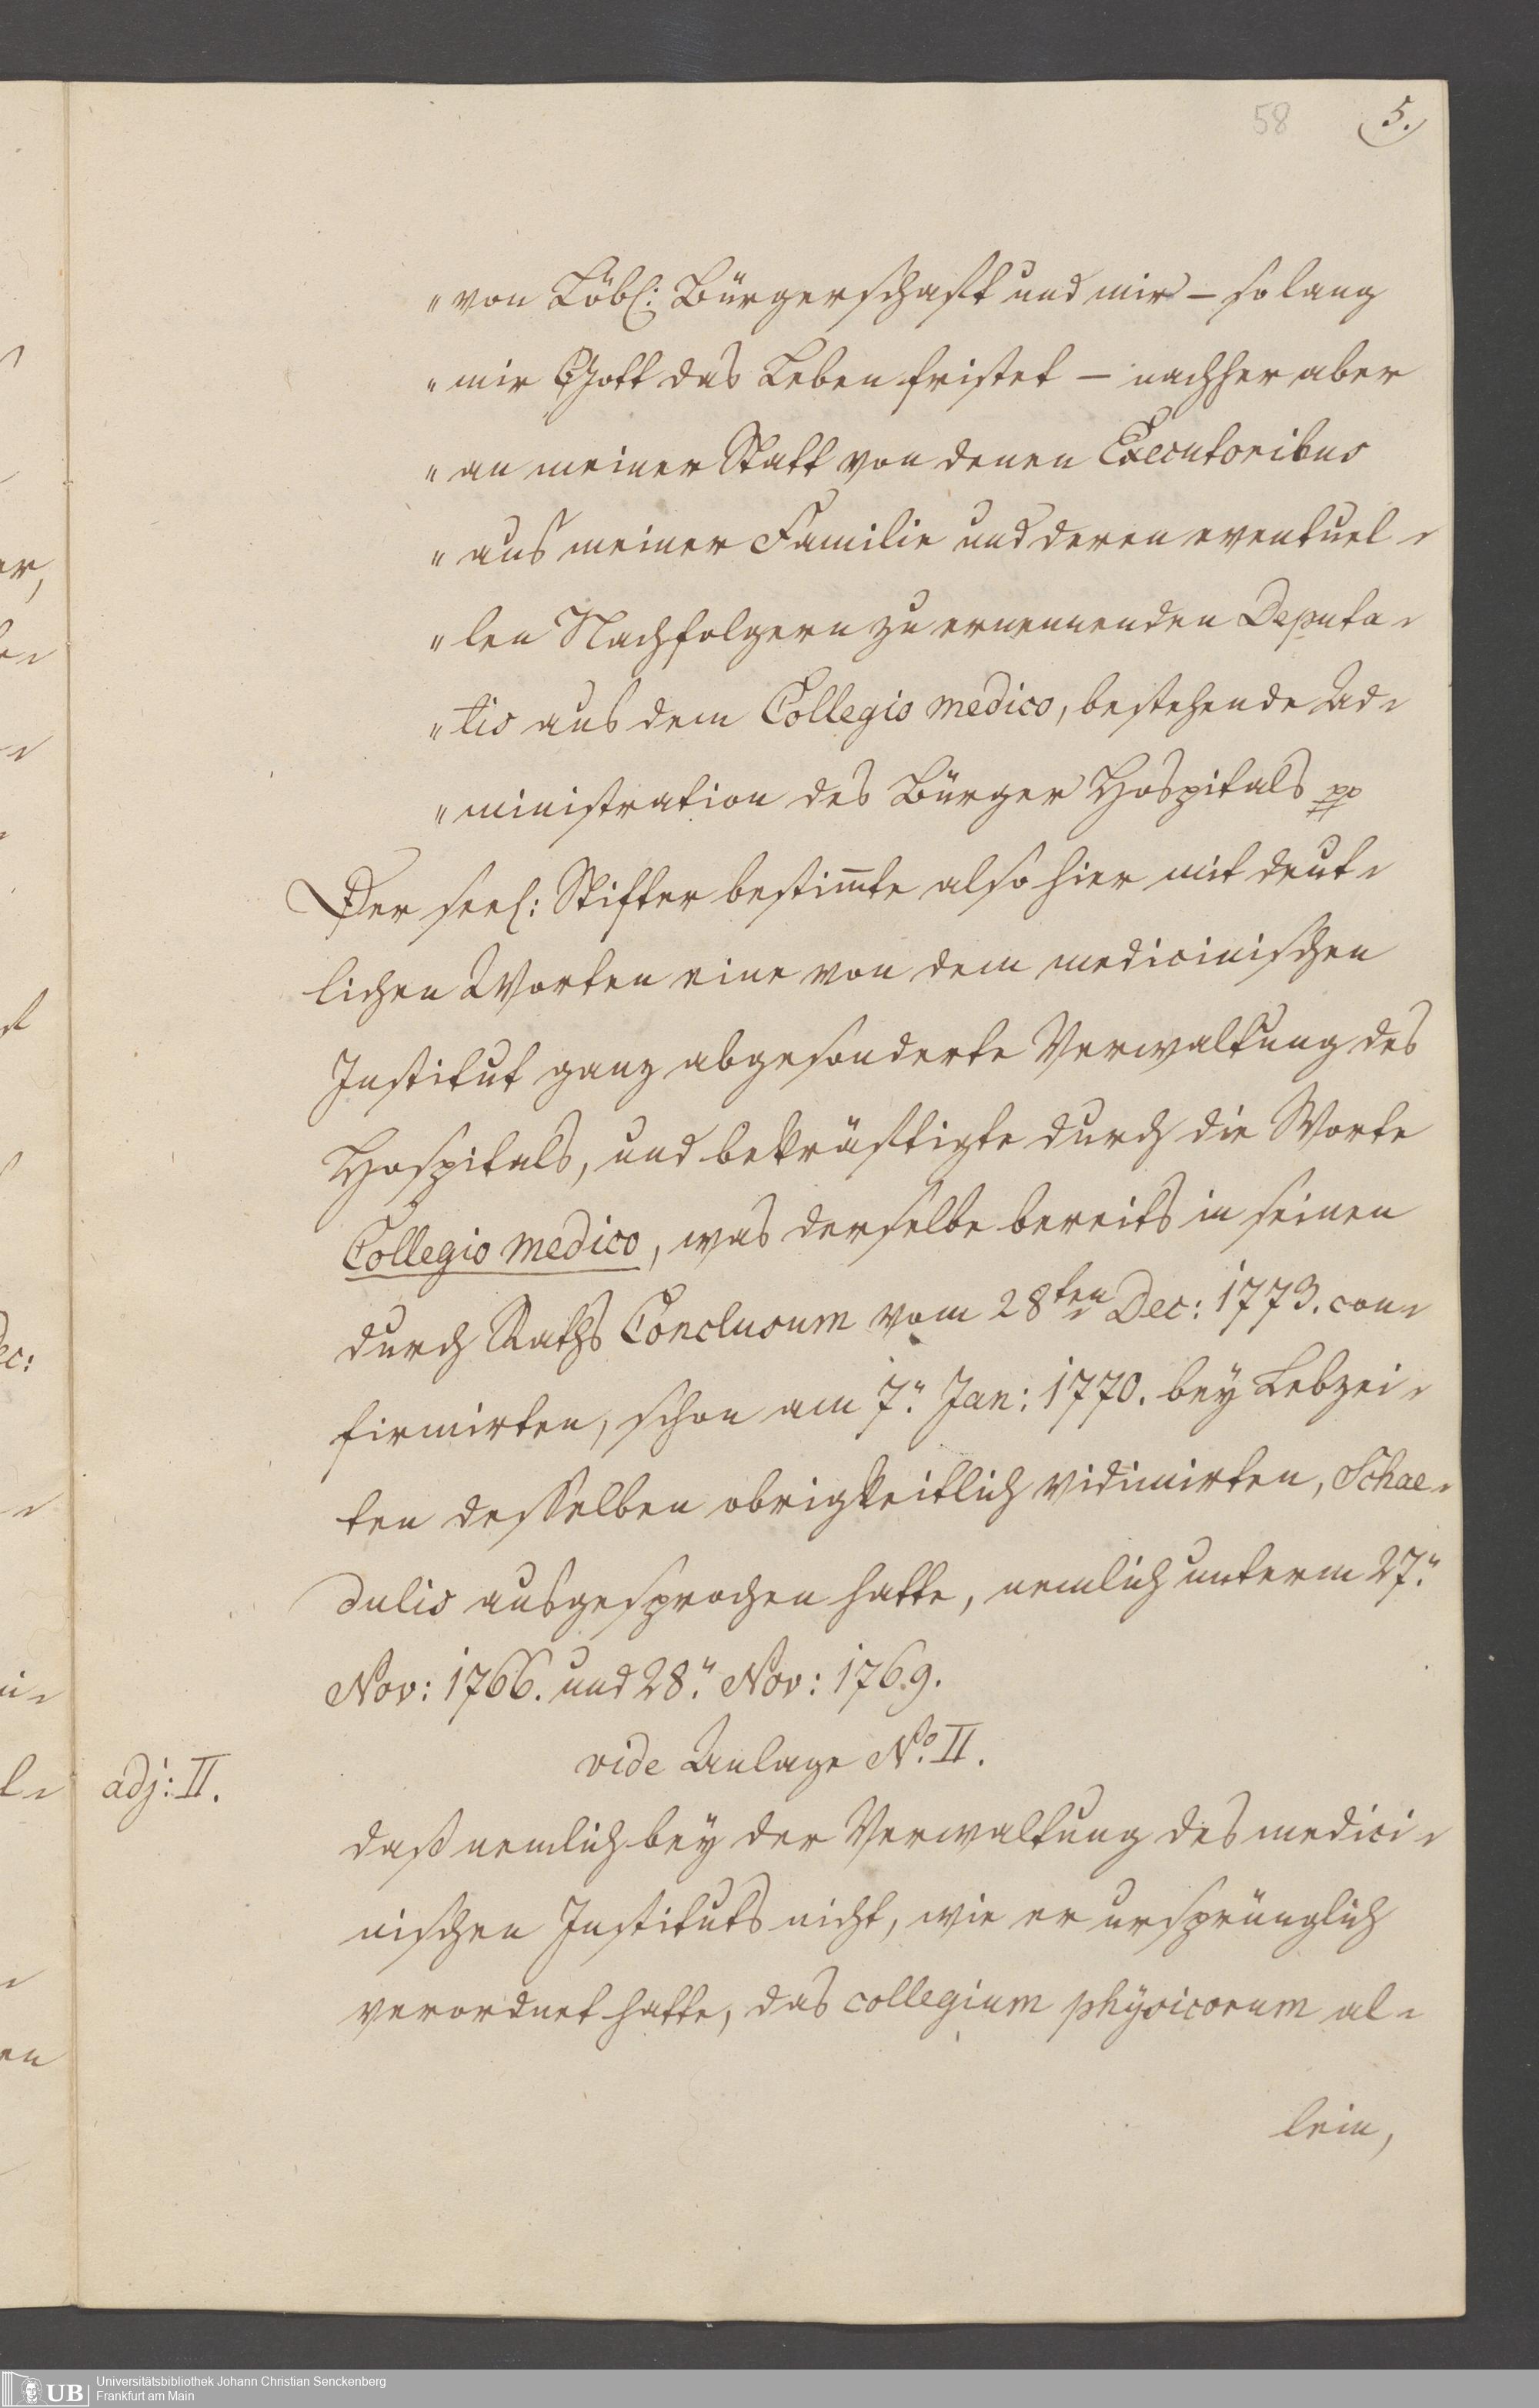 58 5.
„von Löbl: Bürgerschafft und mir – so lang
„mir Gott das Leben fristet – nachher aber
„an meiner Statt von denen Executoribus
„aus meiner Familie und deren eventuel-
„len Nachfolgern zu ernennenden Deputa-
„tis aus dem Collegio medico, bestehende Ad-
„ministration des Bürger Hospitals pp
Der seel: Stifter bestim̄te also hier mit deut-
lichen Worten eine von dem medicinischen
Institut ganz abgesonderte Verwaltung des
Hospitals, und bekräftigte durch die Worte
Collegio medico, was derselbe bereits in seinen
durch Raths Conclusum vom 28ten Dec: 1773. con-
firmirten, schon am 7.n Jan: 1770. bey Lebzei-
ten desselben obrigkeitlich vidimirten, Schae-
dulis ausgesprochen hatte, nemlich unterm 27.n
Nov: 1766. und 28.n Nov: 1769.
vide Anlage No. II.
adj: II.
daß nemlich bey der Verwaltung des medici-
nischen Instituts nicht, wie er ursprünglich
verordnet hatte, das collegium physicorum al-
lein,
er,
ec:
en
UB Universitätsbibliothek Johann Christian Senckenberg
Frankfurt am Main